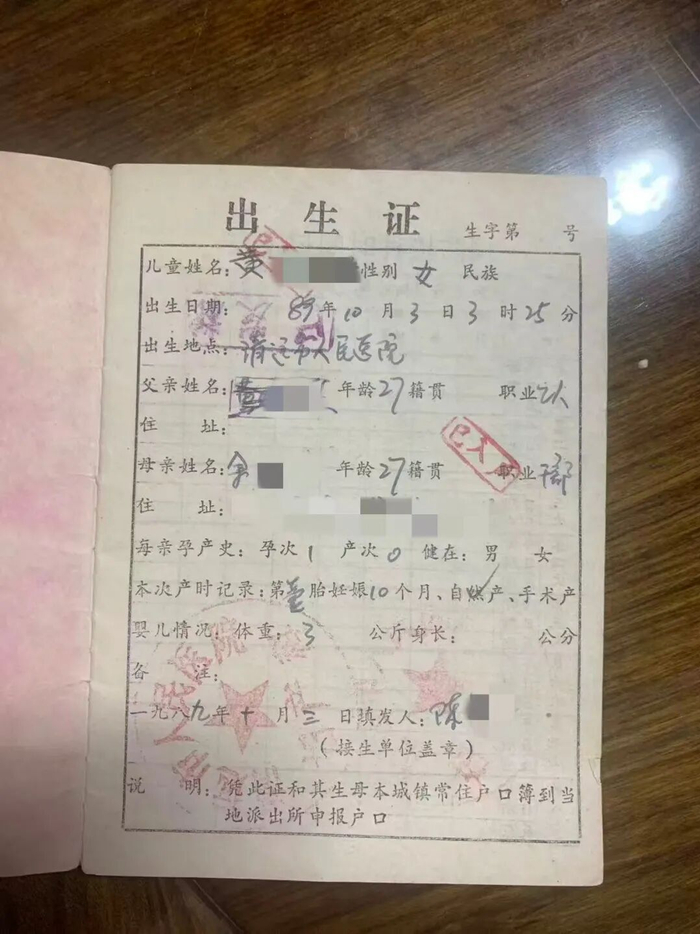 出生证 生字第 号
儿童姓名：黄 性别 女 民族
出生日期： 89年10月3日3时25分
出生地点：清远市人民医院
父亲姓名： 年龄27籍贯 职业
住 址：
已入
母亲姓名：余 年龄27籍贯 职业干部
住 址：
每亲孕产史：孕次1 产次0 健在：男 女
本次产时记录：第壹胎妊娠10个月、自然产、手术产
婴儿情况：体重：3 公斤身长： 公分
备 注：
一九八九年十月三日填发人：陈
（接生单位盖章）
说 明：凭此证和其生母本城镇常住户口簿到当
地派出所申报户口